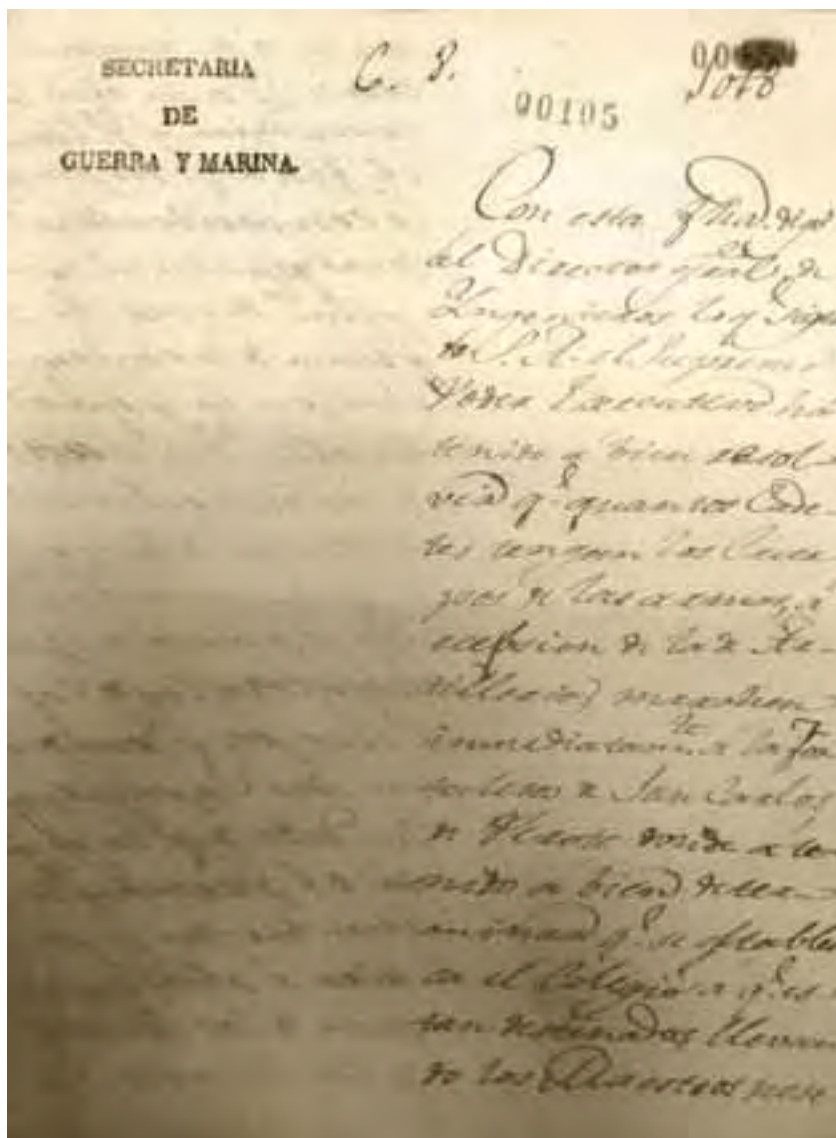 SECRETARIA
DE
GUERRA Y MARINA.
C. 8.
00105
Con esta fha. digo
al Director gral. de
Ingenieros lo q. sigue
S. A. el Supremo
Poder Executivo ha
tenido a bien resol-
ver q. quantos Cade-
tes tengan los Cuer-
pos de las armas, a
ecepsion de la de Ar-
tilleria, marchen
inmediatamte. a la For-
taleza de San Carlos
de Perote donde a te-
nido a bien deter-
minar q. se establez
ca el Colegio a q. es-
tan destinados llevan-
do los Maestros nese